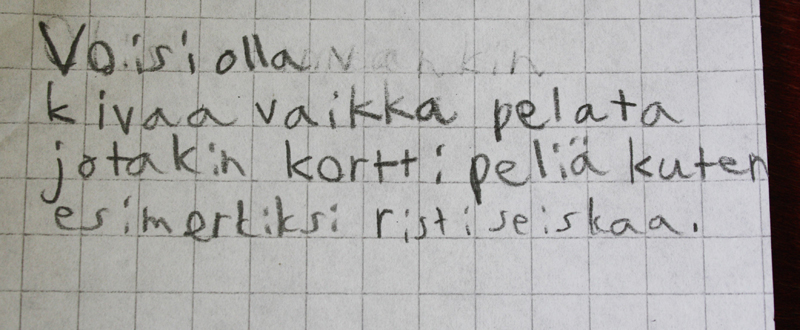 Voisi olla
kivaa vaikka pelata
jotakin kortti peliä kuten
esimerkiksi ristiseiskaa.